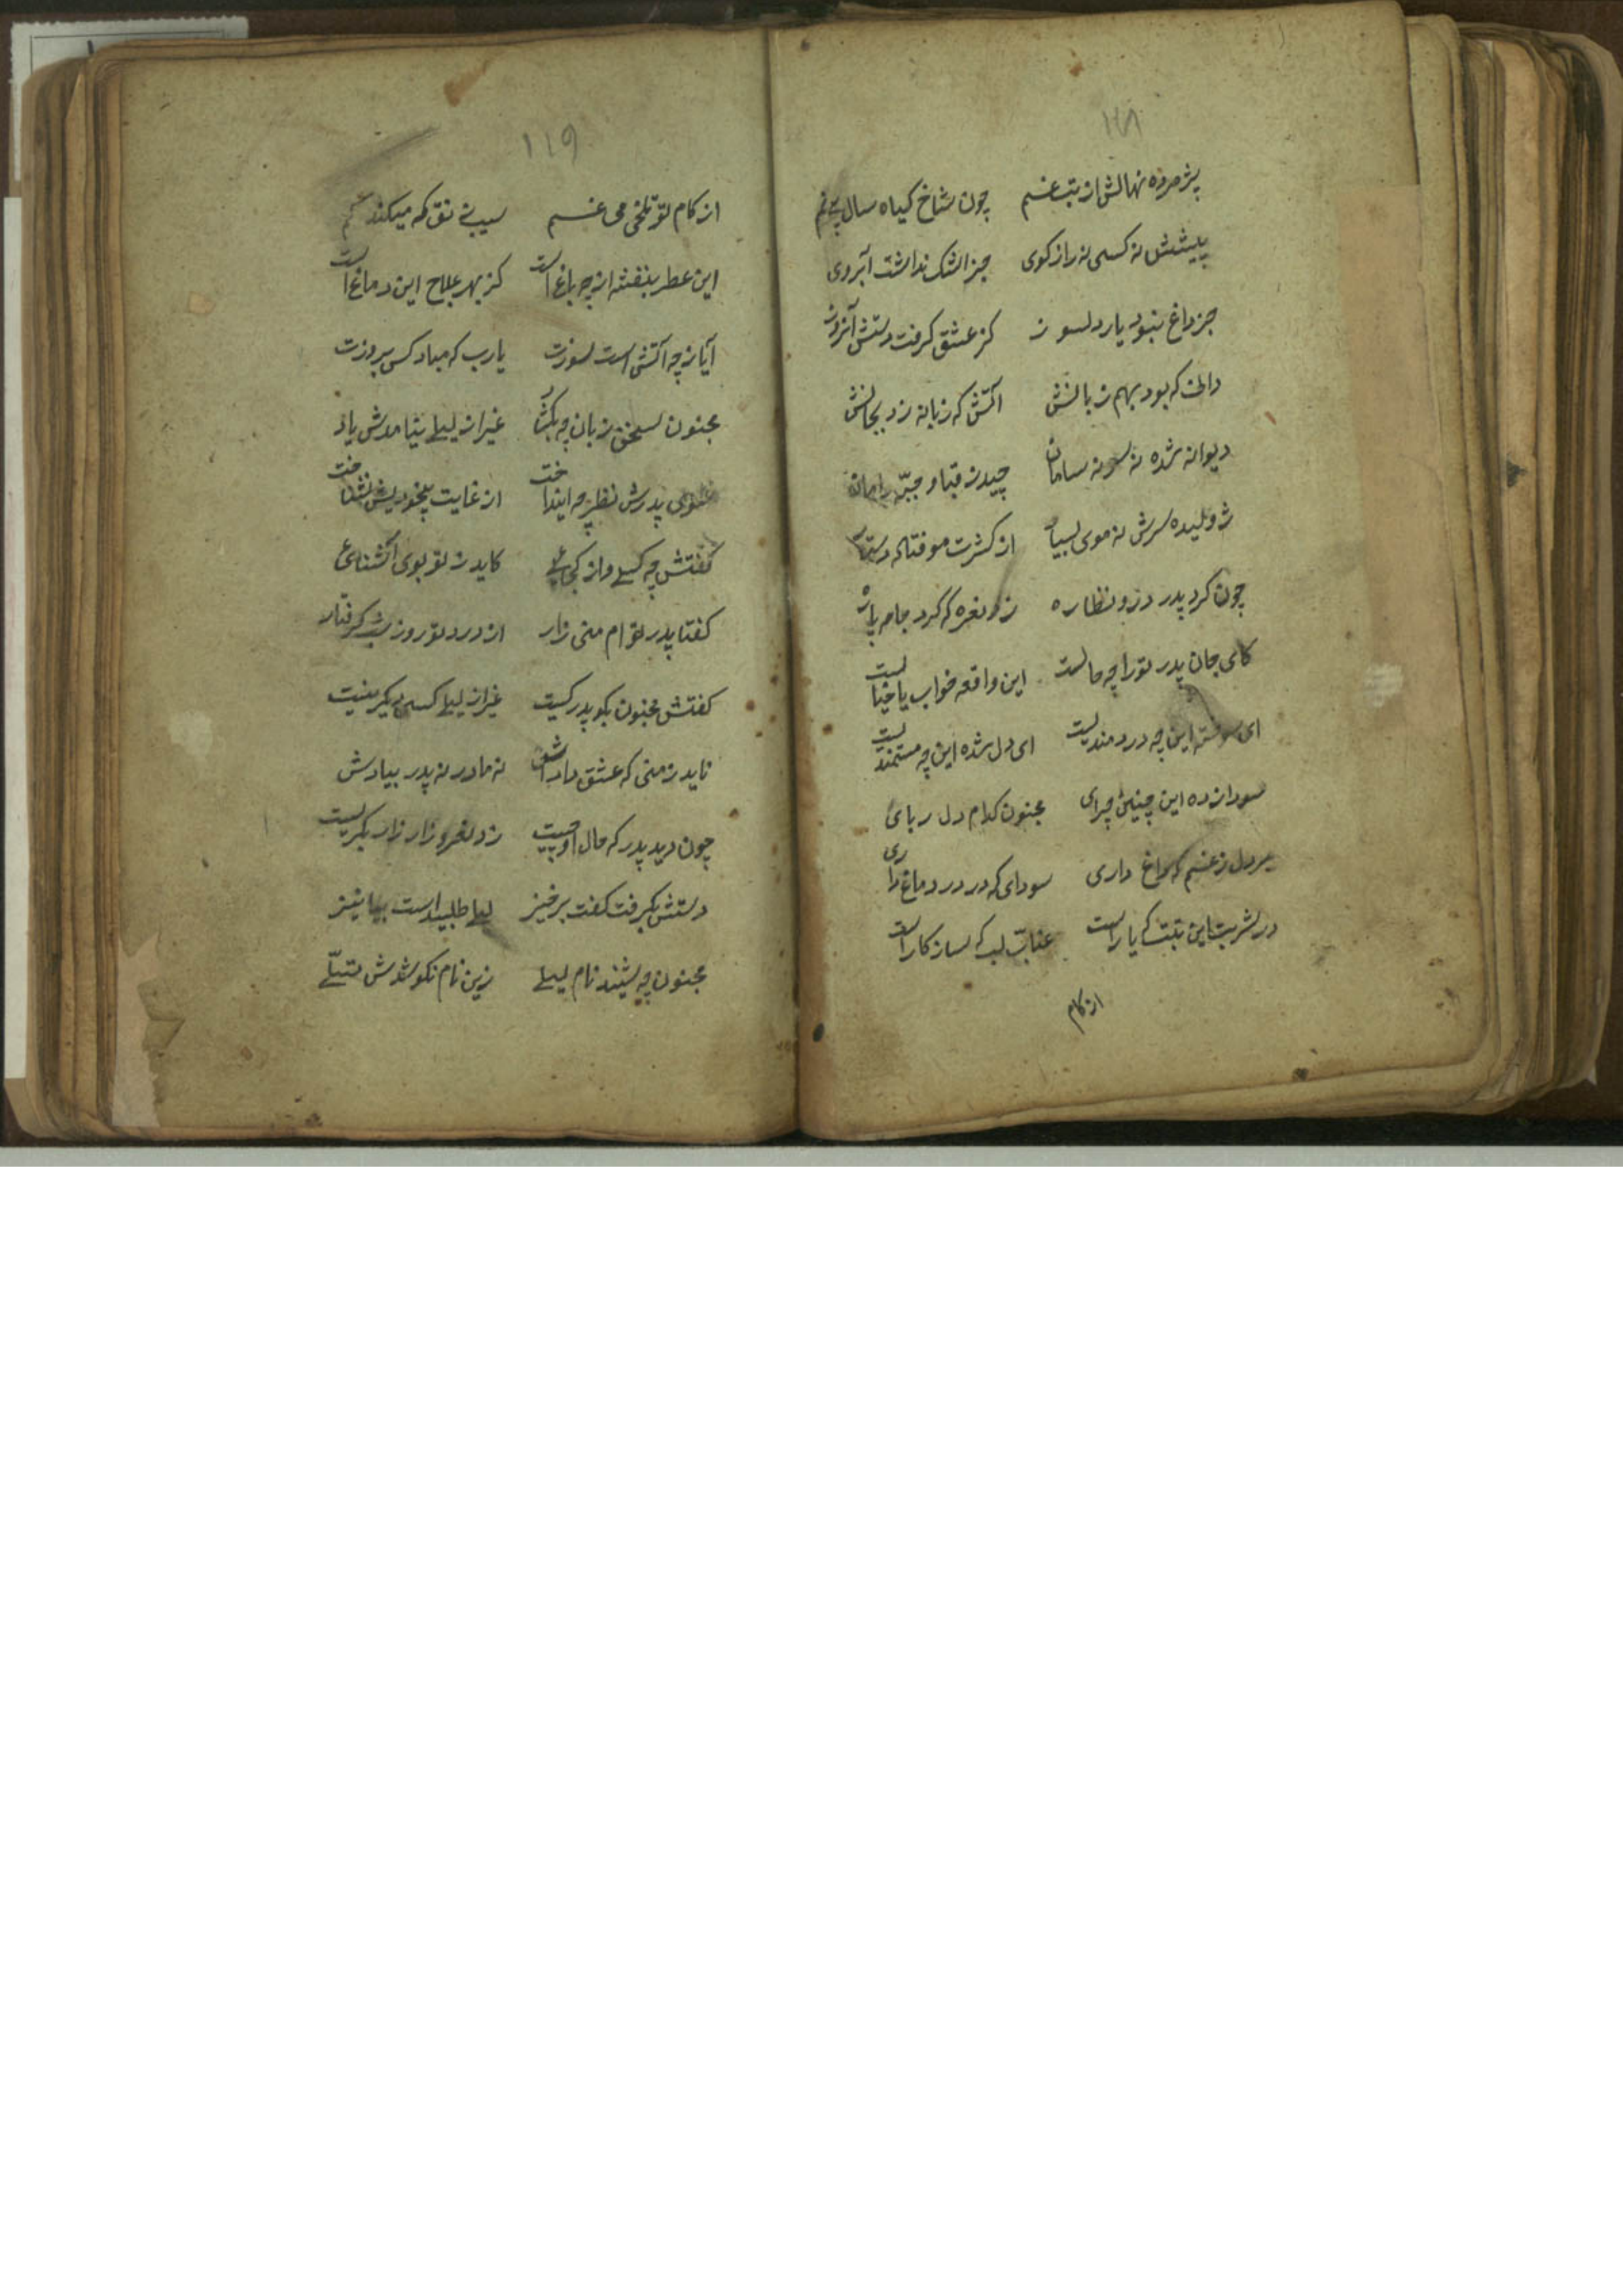 ۱۱۸
پژمرده نهالش از تب غم چون شاخ گیاه سال بی نم
پیشش نه کسی نه راز کوی جز اشک نداشت آبروی
جز داغ نبود یار دلسوز کز عشق گرفت دستش آنروز
دانی که بود بهم زبانش آتش که زبانه زد بجانش
دیوانه شده نه سر نه سامان چیدن قبا و جبّه دامان
ژولیده سرش ز موی بسیار از کثرت مو فتاده دستار
چون کرد پدر درو نظاره زد نعره که کرد جامه پاره
کای جان پدر تو را چه حالست این واقعه خواب یا خیالست
ای سوخته این چه دردمندیست ای دل شده این چه مستمندیست
سودازده این چنین چرای مجنون کدام دل ربای
بر دل ز غم که داغ داری سودای که در در دماغ داری
در شربت این تبت که یار است عناب لب که سازکار است
از کام
۱۱۹
از کام تو تلخی می غم سیب ذقن که میکند کم
این عطر بنفشه از چه باغ است کز بهر علاج این دماغ است
آیا ز چه آتش است سوزت یارب که مباد کس بروزت
مجنون بسخن زبان چه بکشاد غیر از لیلی نیامدش یاد
سوی پدرش نظر چه انداخت از غایت بیخودیش نشناخت
گفتش چه کسی و از کجائی کاید ز تو بوی آشنائی
گفتا پدر توام منی زار از درد تو روز شب گرفتار
گفتش مجنون بکو پدر کیست غیر از لیلی کسی دیگر نیست
ناید ز منی که عشق دادش نه مادر نه پدر بیادش
چون دید پدر که حال او چیست زد نعره زار زار بکریست
دستش بگرفت گفت برخیز لیلی طلبید است بیا نیز
مجنون چه شنید نام لیلی زین نام نکو شدش تسلّی